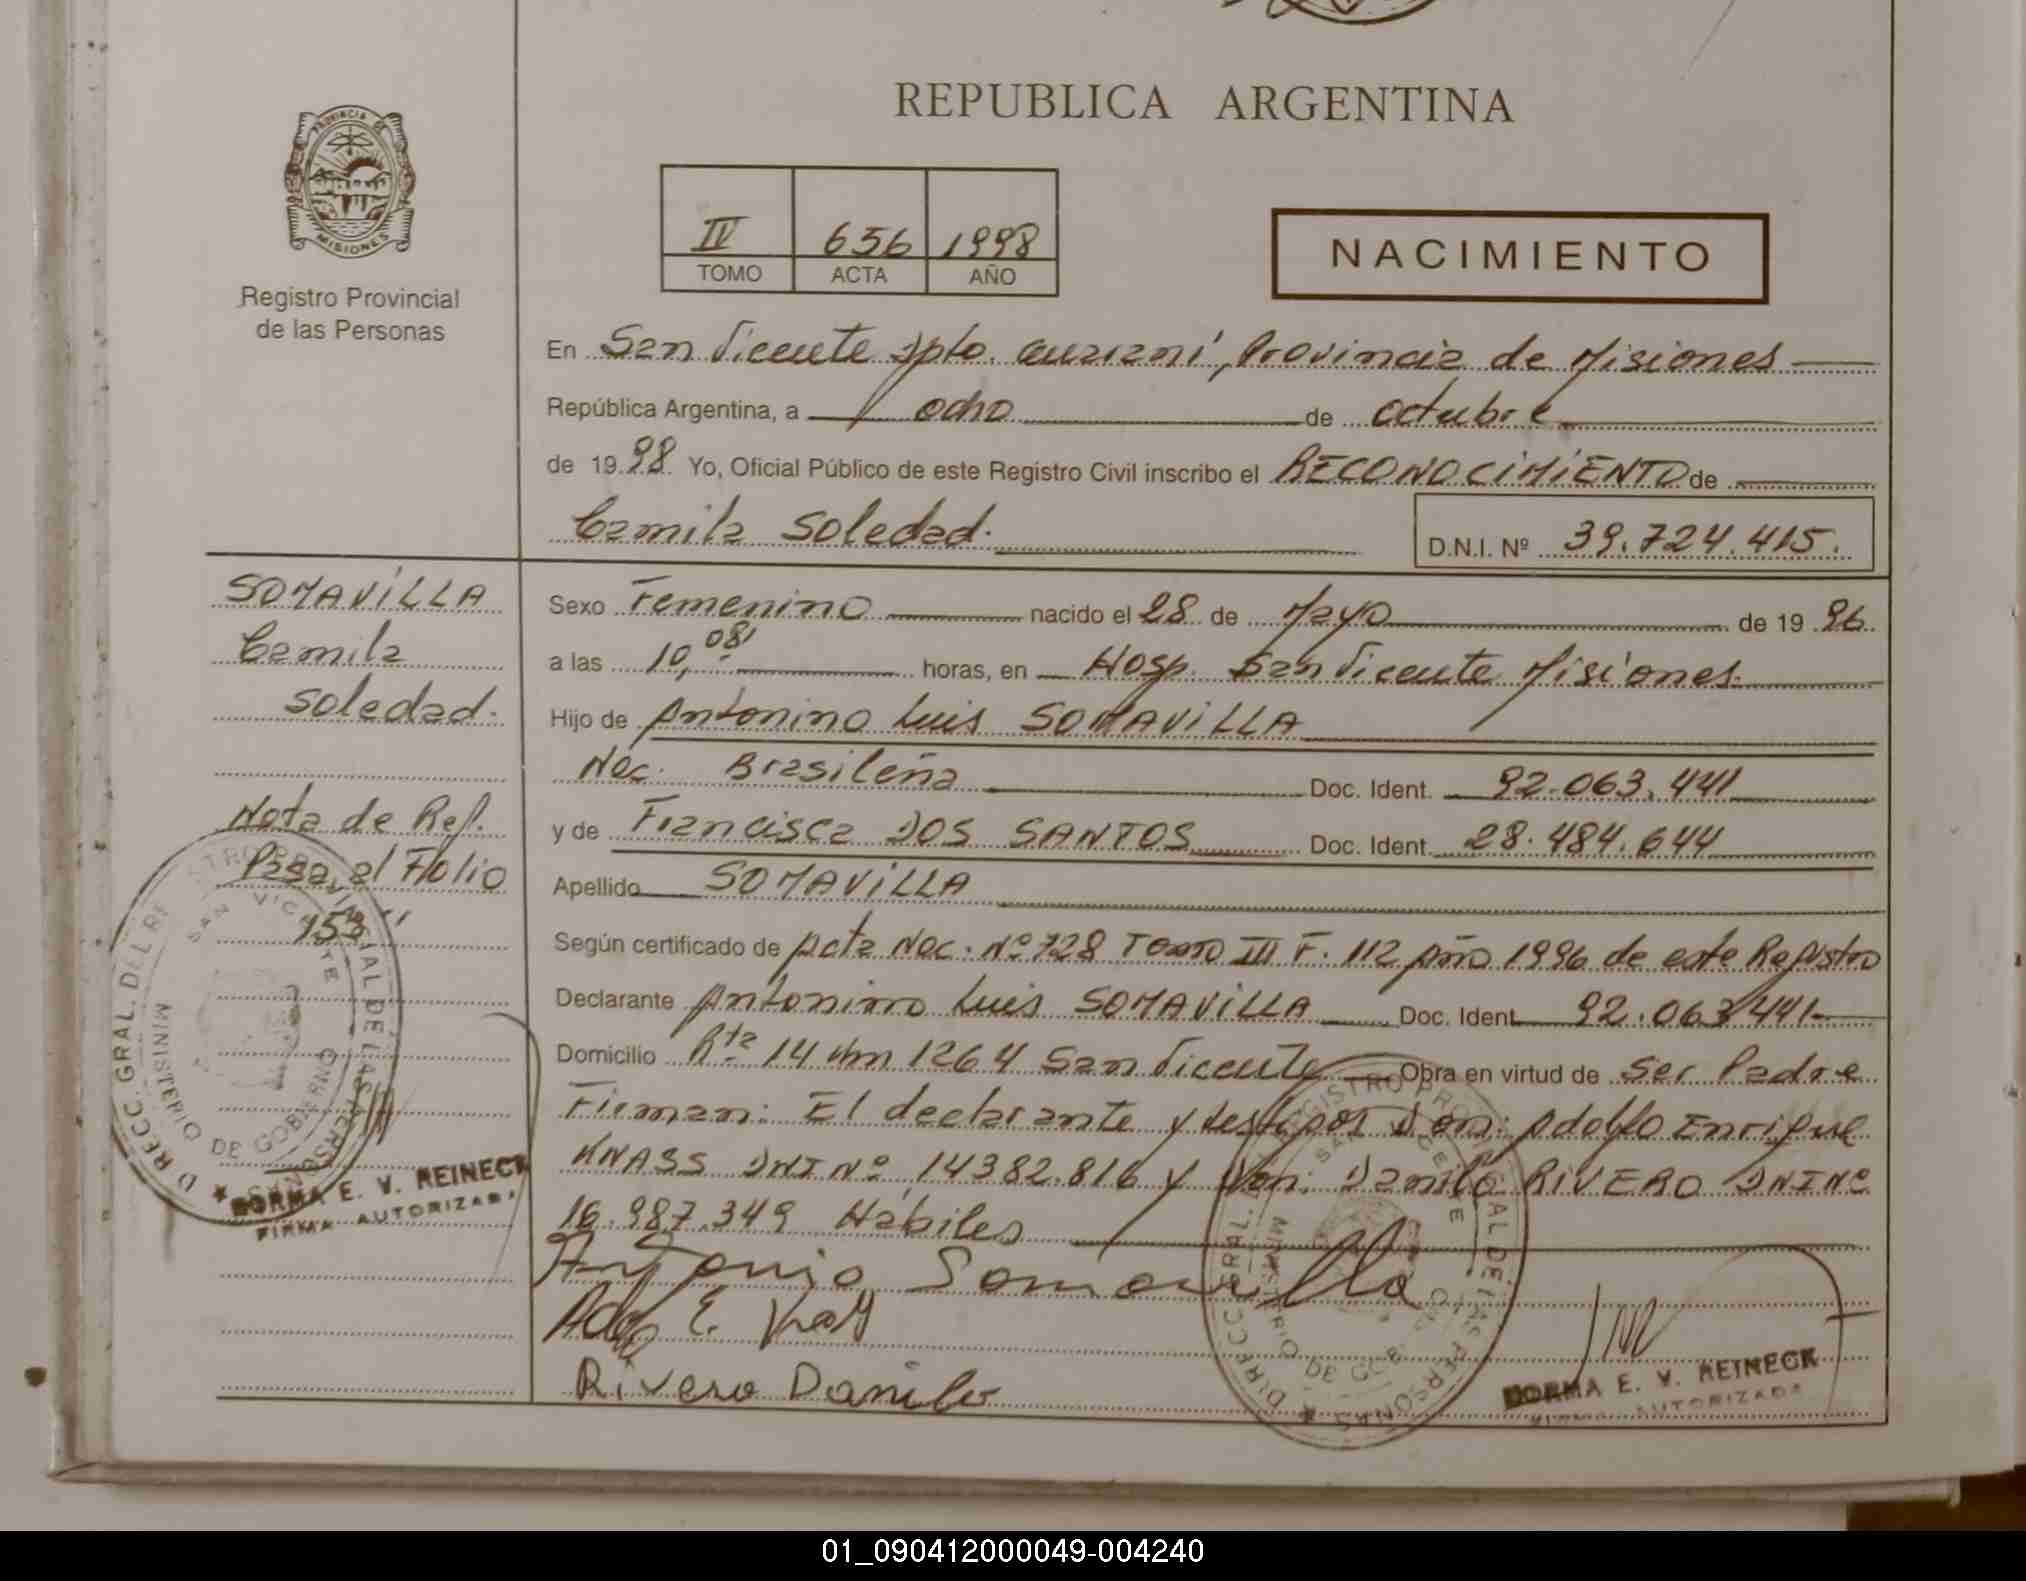 REPUBLICA ARGENTINA
PROVINCIA DE
MISIONES
Registro Provincial
de las Personas
IV 656 1998
TOMO ACTA AÑO
NACIMIENTO
En San Vicente Dpto. Guaraní, Provincia de Misiones
República Argentina, a ocho de octubre
de 1998 Yo, Oficial Público de este Registro Civil inscribo el RECONOCIMIENTO de
Camila Soledad.
D.N.I. Nº 39.724.415.
SOMAVILLA
Camila
Soledad.
Nota de Ref.
Pasa al Folio
153
Sexo Femenino nacido el 28 de Mayo de 1996
a las 10,08 horas, en Hosp. San Vicente Misiones.
Hijo de Antonino Luis SOMAVILLA
Nac. Brasileña Doc. Ident. 92.063.441
y de Francisca DOS SANTOS Doc. Ident. 28.484.644
Apellido SOMAVILLA
Según certificado de Acta Nac. Nº 728 Tomo III F. 112 Año 1996 de este Registro
Declarante Antonino Luis SOMAVILLA Doc. Ident. 92.063441
Domicilio Rta 14 km 1264 San Vicente Obra en virtud de Ser Padre
Firman: El declarante y testigos Don: Adolfo Enrique
KNASS DNI Nº 14382.816 y Don: Danilo RIVERO DNI Nº
16.987.349 Habiles
Antonio Somavilla
Rivero Danilo
DIRECC. GRAL. DEL REGISTRO PROVINCIAL DE LAS PERSONAS
SAN VICENTE
MINISTERIO DE GOBIERNO
NORMA E. V. REINECK
FIRMA AUTORIZADA
DIRECC. GRAL. DEL REGISTRO PROVINCIAL DE LAS PERSONAS
SAN VICENTE
MINISTERIO DE GOBIERNO
NORMA E. V. REINECK
FIRMA AUTORIZADA
01_090412000049-004240